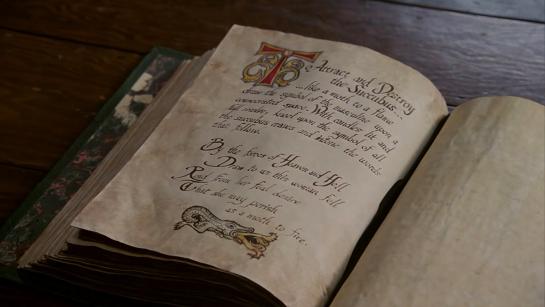 To Attract and Destroy
the Succubus...
...like a moth to a flame
draw the symbol of the masculine upon a
consecrated space. With candles lit and
the succubus craves and incant the words
that follow.
By the forces of Heaven and Hell
Draw to us this woman fell
Rend from her foul desire
That she may perish
as a moth to fire...